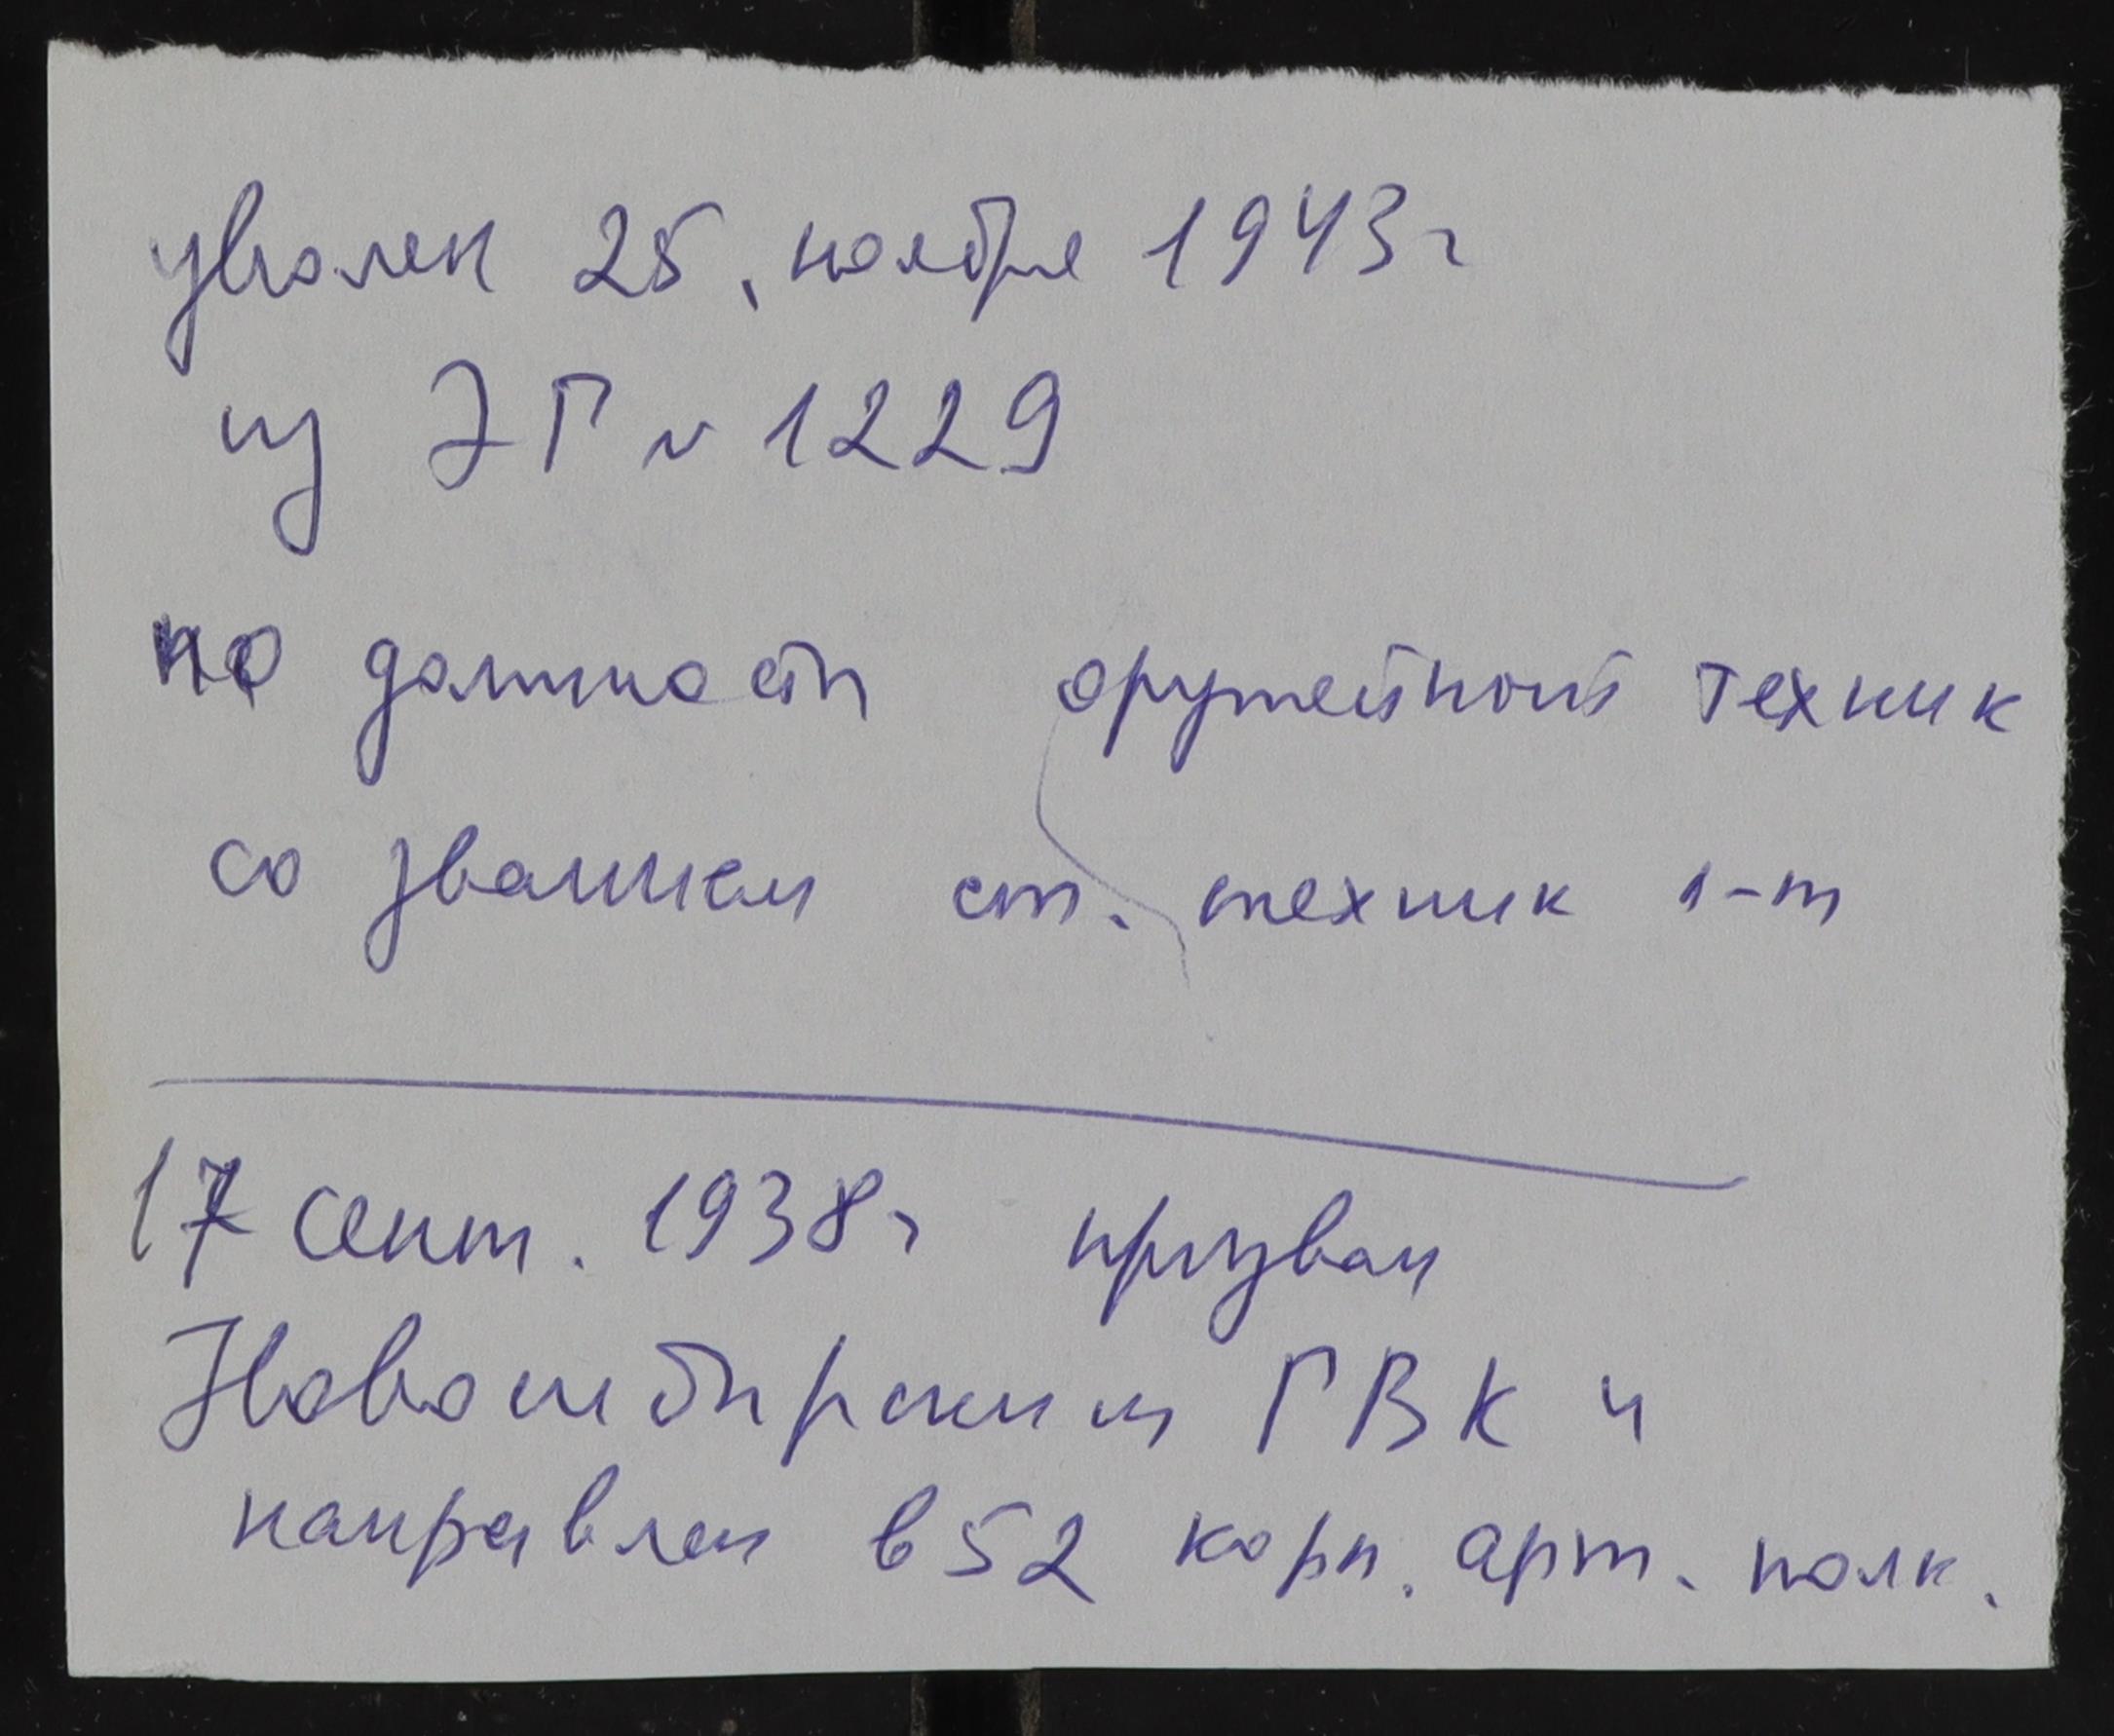 уволен 25, ноября 1943г
из ЭГ N 1229
по должности оружейной техник
со званием ст. техник л-т
17 сент. 1938г призван
Новосибирским ГВК и
направлен в 52 корп. арт. полк.